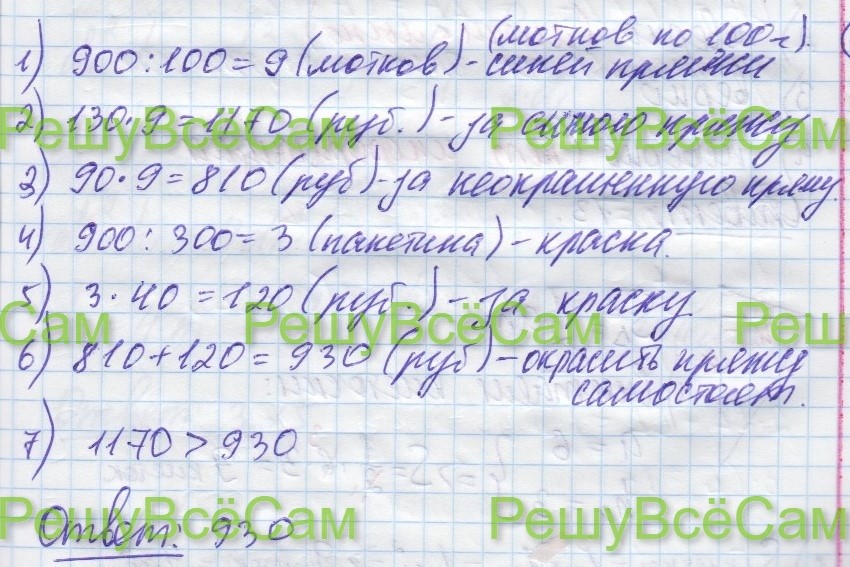 (мотков по 100г).
1) 900:100=9 (мотков) - синей пряжи
2) 130·9=1170 (руб.) - за синюю пряжу
3) 90·9=810 (руб) - за неокрашенную пряжу.
4) 900:300=3 (пакетика) - краска.
5) 3·40=120 (руб.) - за краску
6) 810+120=930 (руб) - окрасить пряжу
самостоят.
7) 1170>930
Ответ: 930
РешуВсёСам РешуВсёСам
Сам РешуВсёСам Решу
РешуВсёСам РешуВсёСам